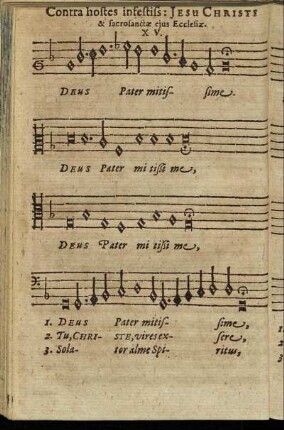 Contra hostes infestiss: JESU CHRISTI
& sacrosanctæ ejus Ecclesiæ.
XV.
DEUS Pater mitis- sime.
DEUS Pater mi tissi me,
DEUS Pater mi tissi me,
1. DEUS Pater mitis- sime,
2. Tu, CHRI- STE, vires ex- sere,
3. Sola- tor alme Spi- ritus,